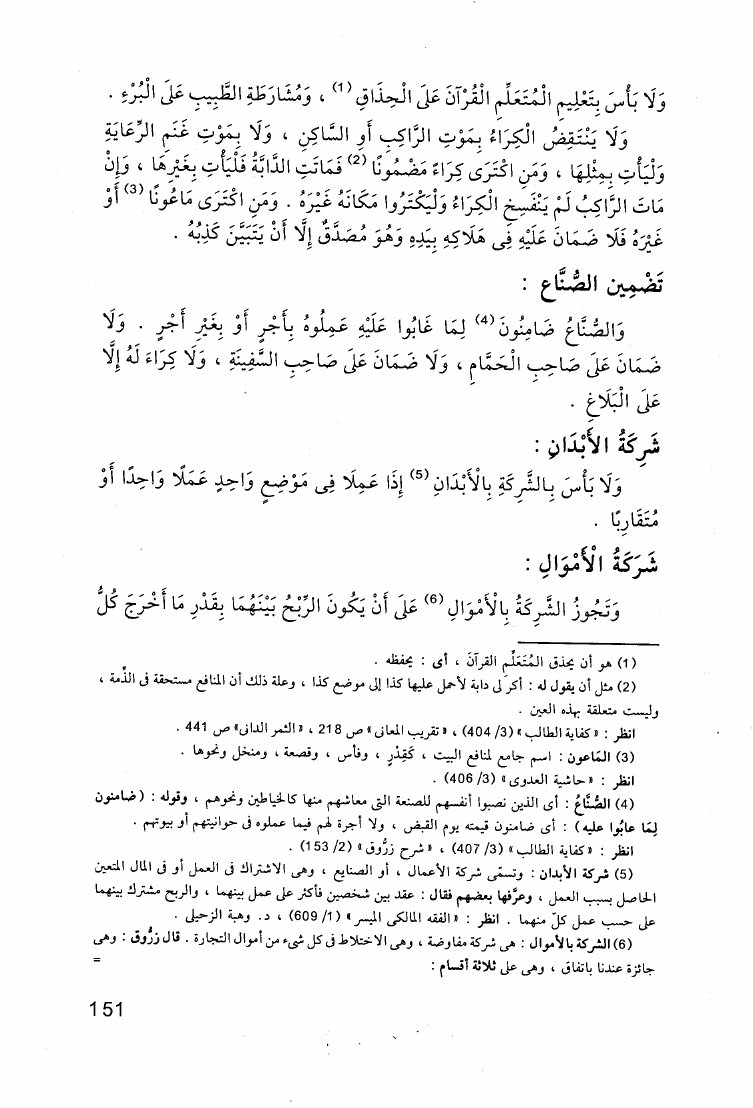 وَلَا بَأْسَ بِتَعْلِيمِ الْمُتَعَلِّمِ الْقُرْآنَ عَلَى الْحِذَاقِ (1) ، وَمُشَارَطَةِ الطَّبِيبِ عَلَى الْبُرْءِ .
وَلَا يَنْتَقِضُ الْكِرَاءُ بِمَوْتِ الرَّاكِبِ أَوِ السَّاكِنِ ، وَلَا بِمَوْتِ غَنَمِ الرِّعَايَةِ
وَلْيَأْتِ بِمِثْلِهَا ، وَمَنِ اكْتَرَى كِرَاءً مَضْمُونًا (2) فَمَاتَتِ الدَّابَّةُ فَلْيَأْتِ بِغَيْرِهَا ، وَإِنْ
مَاتَ الرَّاكِبُ لَمْ يَنْفَسِخِ الْكِرَاءُ وَلْيَكْتَرُوا مَكَانَهُ غَيْرَهُ . وَمَنِ اكْتَرَى مَاعُونًا (3) أَوْ
غَيْرَهُ فَلَا ضَمَانَ عَلَيْهِ فِى هَلَاكِهِ بِيَدِهِ وَهُوَ مُصَدَّقٌ إِلَّا أَنْ يَتَبَيَّنَ كَذِبُهُ .
تَضْمِين الصُّنَّاع :
وَالصُّنَّاعُ ضَامِنُونَ (4) لِمَا غَابُوا عَلَيْهِ عَمِلُوهُ بِأَجْرٍ أَوْ بِغَيْرِ أَجْرٍ . وَلَا
ضَمَانَ عَلَى صَاحِبِ الْحَمَّامِ ، وَلَا ضَمَانَ عَلَى صَاحِبِ السَّفِينَةِ ، وَلَا كِرَاءَ لَهُ إِلَّا
عَلَى الْبَلَاغِ .
شَرِكَةُ الأَبْدَانِ :
وَلَا بَأْسَ بِالشَّرِكَةِ بِالْأَبْدَانِ (5) إِذَا عَمِلَا فِى مَوْضِعٍ وَاحِدٍ عَمَلًا وَاحِدًا أَوْ
مُتَقَارِبًا .
شَرِكَةُ الْأَمْوَالِ :
وَتَجُوزُ الشَّرِكَةُ بِالْأَمْوَالِ (6) عَلَى أَنْ يَكُونَ الرِّبْحُ بَيْنَهُمَا بِقَدْرِ مَا أَخْرَجَ كُلُّ
(1) هو أن يحذق المُتَعَلِّمُ القرآن ، أى : يحفظه .
(2) مثل أن يقول له : أكر لى دابة لأحمل عليها كذا إلى موضع كذا ، وعلة ذلك أن المنافع مستحقة فى الذمة ،
وليست متعلقة بهذه العين .
انظر : « كفاية الطالب » (3/ 404) ، « تقريب المعانى » ص 218 ، « الثمر الدانى » ص 441 .
(3) المَاعون : اسم جامع لمنافع البيت ، كَقِدْرٍ ، وفأس ، وقصعة ، ومنخل ونحوها .
انظر : « حاشية العدوى » (3/ 406) .
(4) الصُّنَّاعُ : أى الذين نصبوا أنفسهم للصنعة التى معاشهم منها كالخياطين ونحوهم ، وقوله : (ضامنون
لِمَا غابُوا عليه) : أى ضامنون قيمته يوم القبض ، ولا أجرة لهم فيما عملوه فى حوانيتهم أو بيوتهم .
انظر : « كفاية الطالب » (3/ 407) ، « شرح زرُّوق » (2/ 153) .
(5) شركة الأبدان : وتسمّى شركة الأعمال ، أو الصنايع ، وهى الاشتراك فى العمل أو فى المال المتعين
الحاصل بسبب العمل ، وعرَّفها بعضهم فقال : عقد بين شخصين فأكثر على عمل بينهما ، والربح مشترك بينهما
على حسب عمل كلّ منهما . انظر : « الفقه المالكى الميسر » (1/ 609) ، د. وهبة الزحيلى .
(6) الشركة بالأموال : هى شركة مفاوضة ، وهى الاختلاط فى كل شىء من أموال التجارة . قال زرُّوق : وهى
جائزة عندنا باتفاق ، وهى على ثلاثة أقسام : =
151